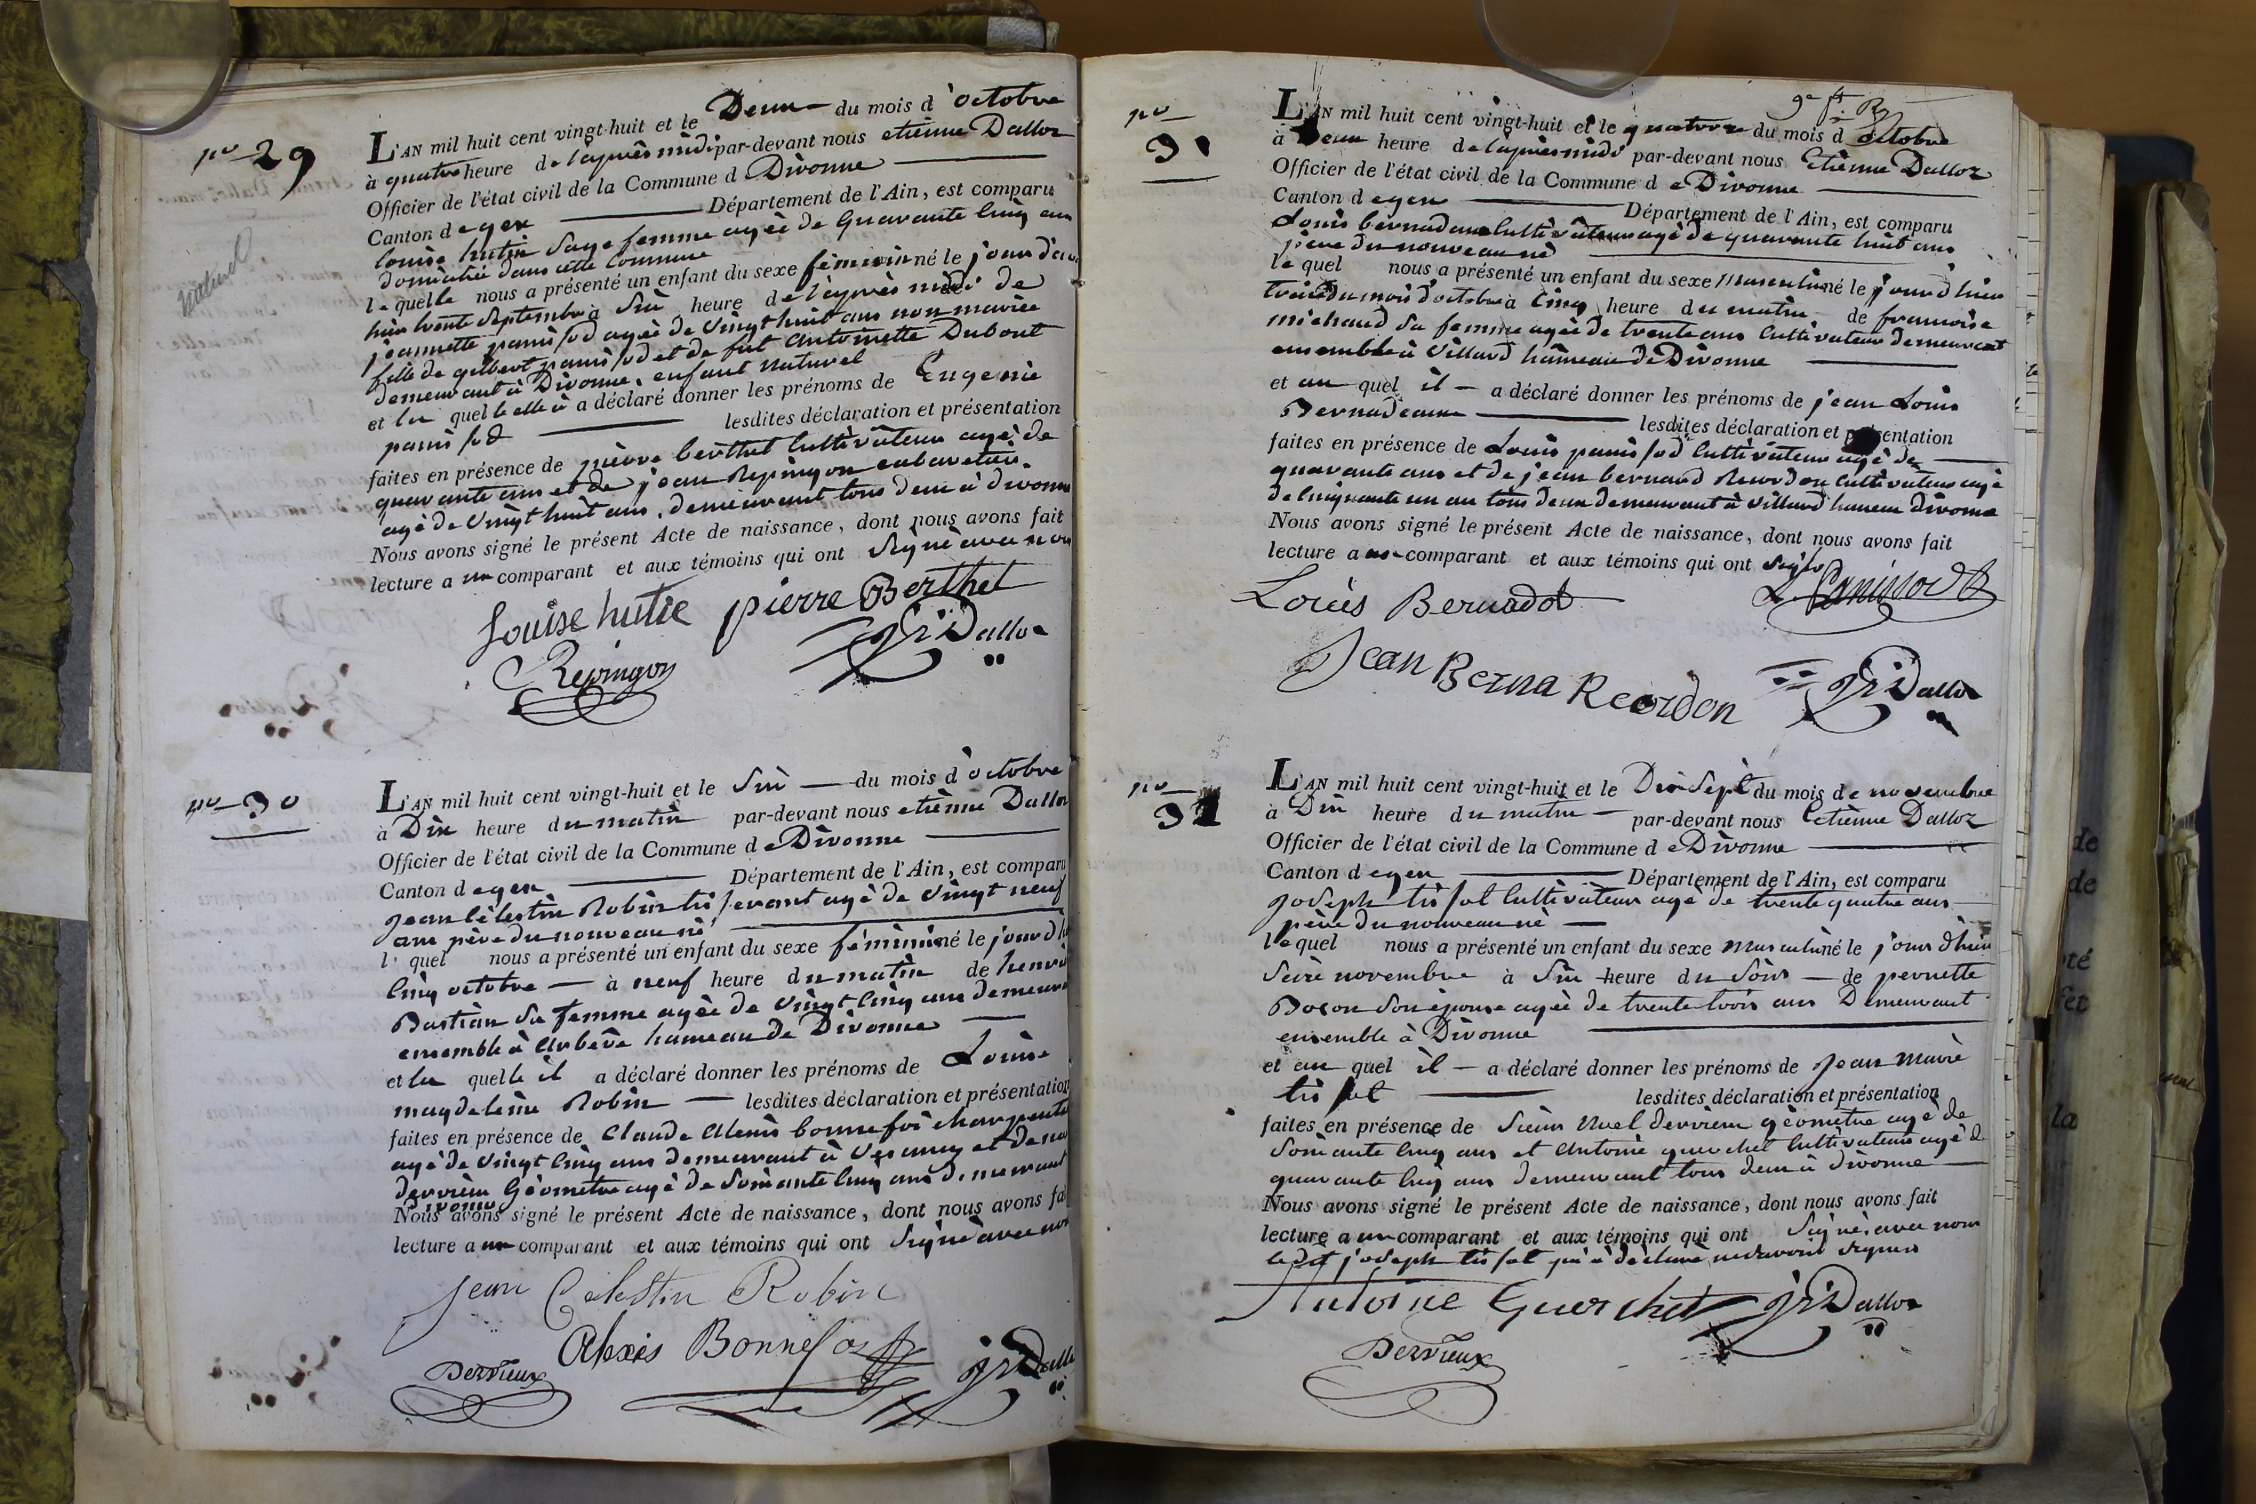 no 29
L'AN mil huit cent vingt-huit et le Deux du mois d'octobre
à quatre heure de l'aprèsmidi par-devant nous etiènne Dalloz
Officier de l'état civil de la Commune d Divonne
Canton de gex Département de l'Ain, est comparu
Louise hutin Sage femme agée de Quarante Cinq ans
domiciliée dans cette Commune
naturel
lequelle nous a présenté un enfant du sexe féminin né le jour d'av
hier trente Septembre à Six heure de l'après midi de
jeannette panissod agée de Vingt huit ans non mariée
fille de gilbert panissod et de fut antoinette Dubout
demeurant à Divonne, enfant naturel
et la quelle elle à a déclaré donner les prénoms de Eugenie
panissod lesdites déclaration et présentation
faites en présence de pièrre berthet Cultivâteur agé de
quarante ans et de jean Repingon cabaretier
agé de Vingt huit ans, demeurant tous deux à divonne
Nous avons signé le présent Acte de naissance, dont nous avons fait
lecture a un comparant et aux témoins qui ont Signé avec nous
Louise hutie pierre Berthet
Repingon Dalloz
no 30
L'AN mil huit cent vingt-huit et le Six du mois d'octobre
à Dix heure du matin par-devant nous etiènne Dalloz
Officier de l'état civil de la Commune de Divonne
Canton de gex Département de l'Ain, est comparu
jean Célestin Robin agé de Vingt neuf
ans père du nouveau né
l' quel nous a présenté un enfant du sexe féminin né le jour d'h
Cinq octobre à neuf heure du matin de
Bastian Sa femme agée de Vingt Cinq ans demeura
ensemble à Arbère hameau de Divonne
et la quelle il a déclaré donner les prénoms de Louise
magdeleine Robin lesdites déclaration et présentation
faites en présence de Claude Alexis bonnefoi charpentie
agé de Vingt Cinq ans demeurant à Vesancy et de
derrieux Géomètre agé de Soixante Cinq ans demeurant
Divonne
Nous avons signé le présent Acte de naissance, dont nous avons fai
lecture a un comparant et aux témoins qui ont Signé avec nou
jean Celestin Robin
Alexis Bonnefoi
Derrieux Dalloz
no 31
L'AN mil huit cent vingt-huit et le quatorze du mois d octobre
à Deux heure de l'aprèsmidi par-devant nous Etiènne Dalloz
Officier de l'état civil de la Commune de Divonne
Canton de gex Département de l'Ain, est comparu
Louis bernadeaux Cultivâteur agé de quarante huit ans
père du nouveau né
lequel nous a présenté un enfant du sexe Masculin né le jour d'hier
treize du mois d'octobre à Cinq heure du matin de francoise
michaud Sa femme agée de trente ans Cultivateur demeurant
ensemble à Villard hâmeau de Divonne
et au quel il a déclaré donner les prénoms de jean Louis
Bernadeaux lesdites déclaration et présentation
faites en présence de Louis panissod Cultivateur agé de
quarante ans et de jean bernard Recordon Cultivateur agé
de Cinquante un an tous deux demeurant à Villard hameau divonne
Nous avons signé le présent Acte de naissance, dont nous avons fait
lecture a un comparant et aux témoins qui ont Signé
Louis Bernadot L. Panissod
Jean Berna Recordon Dalloz
no 32
L'AN mil huit cent vingt-huit et le Dix Sept du mois de novembre
à Dix heure du matin par-devant nous Etiènne Dalloz
Officier de l'état civil de la Commune de Divonne
Canton de gex Département de l'Ain, est comparu
joseph tissot Cultivâteur agé de trente quatre ans
père du nouveau né
lequel nous a présenté un enfant du sexe masculin né le jour d'hier
Seize novembre à Six heure du Soir de pernette
Boson Son épouse agée de trente trois ans Demeurant
ensemble à Divonne
et au quel il a déclaré donner les prénoms de Jean Marie
tissot lesdites déclaration et présentation
faites en présence de Sieurs Noel derrieux géomètre agé de
Soixante Cinq ans et Antoine guerchet Cultivateur agé de
quarante Cinq ans demeurant tous deux à divonne
Nous avons signé le présent Acte de naissance, dont nous avons fait
lecture a un comparant et aux témoins qui ont Signé avec nous
ledit joseph tissot qui à déclaré ne savoir signer
Antoine Guerchet Dalloz
Derrieux